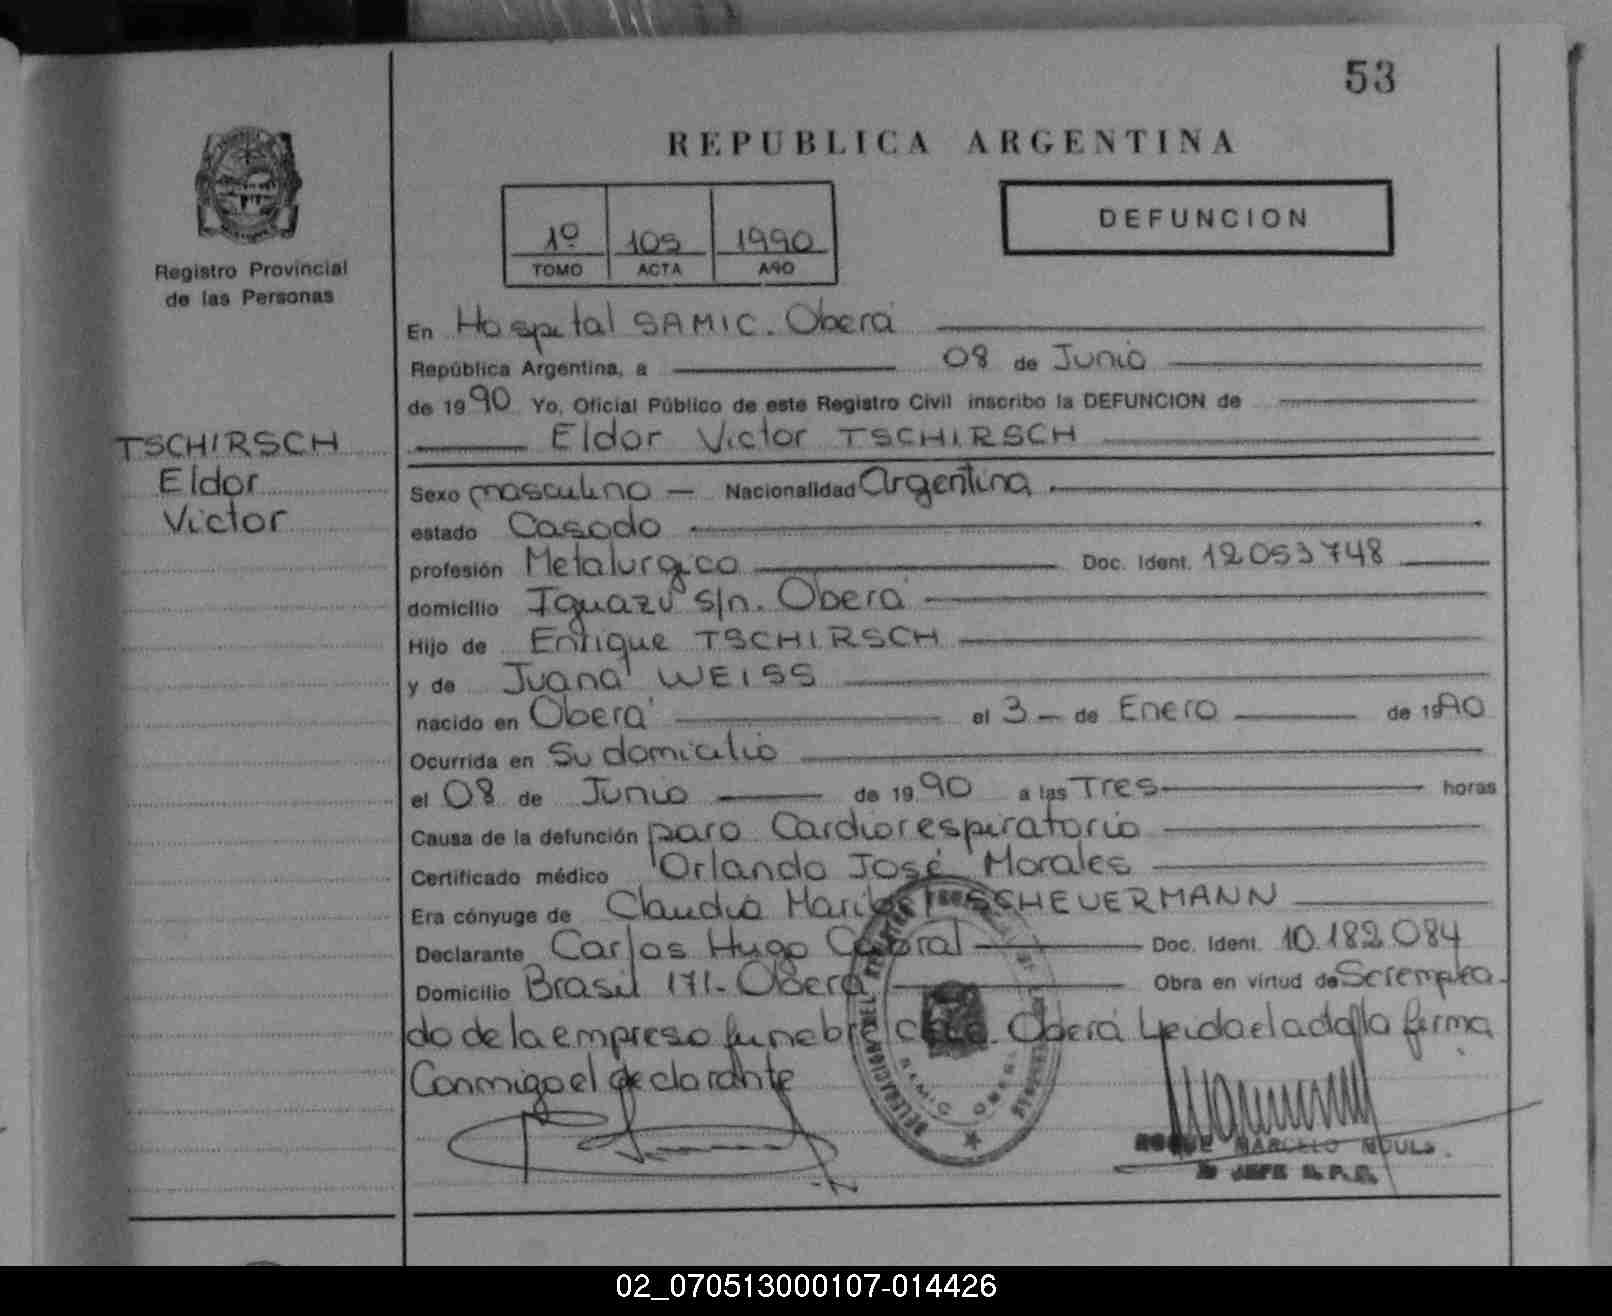 53
REPUBLICA ARGENTINA
1º 105 1990
TOMO ACTA AÑO
DEFUNCION
Registro Provincial
de las Personas
En Hospital SAMIC. Oberá
República Argentina, a 08 de Junio
de 1990 Yo, Oficial Público de este Registro Civil inscribo la DEFUNCION de
Eldor Victor TSCHIRSCH
TSCHIRSCH
Eldor
Victor
Sexo masculino — Nacionalidad Argentina.
estado Casado
profesión Metalurgico Doc. Ident. 12053748
domicilio Iguazú s/n. Oberá
Hijo de Enrique TSCHIRSCH
y de Juana WEISS
nacido en Oberá el 3 — de Enero de 19
Ocurrida en Su domicilio
el 08 de Junio de 1990 a las Tres horas
Causa de la defunción paro Cardiorespiratorio
Certificado médico Orlando José Morales
Era cónyuge de Claudia SCHEUERMANN
Declarante Carlos Hugo Cabral Doc. Ident. 10.182.084
Domicilio Brasil 171- Oberá Obra en virtud de Ser emplea-
do de la empresa funebre Oberá Leida el acta la firma
Conmigo el declarante
MARCELO
JEFE
02_070513000107-014426